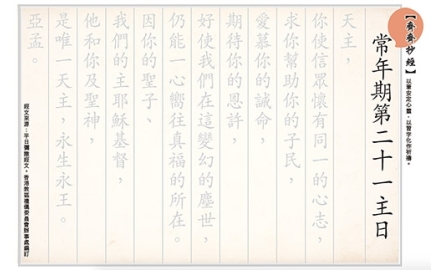 【齊齊抄經】
以筆安定心靈，以習字化作祈禱。
常年期第二十一主日
天主，
你使信眾懷有同一的心志，
求你幫助你的子民，
愛慕你的誡命，
期待你的恩許，
好使我們在這變幻的塵世，
仍能一心嚮往真福的所在。
因你的聖子、
我們的主耶穌基督，
他和你及聖神，
是唯一天主，永生永王。
亞孟。
經文來源：平日彌撒經文。香港教區禮儀委員會辦事處編訂